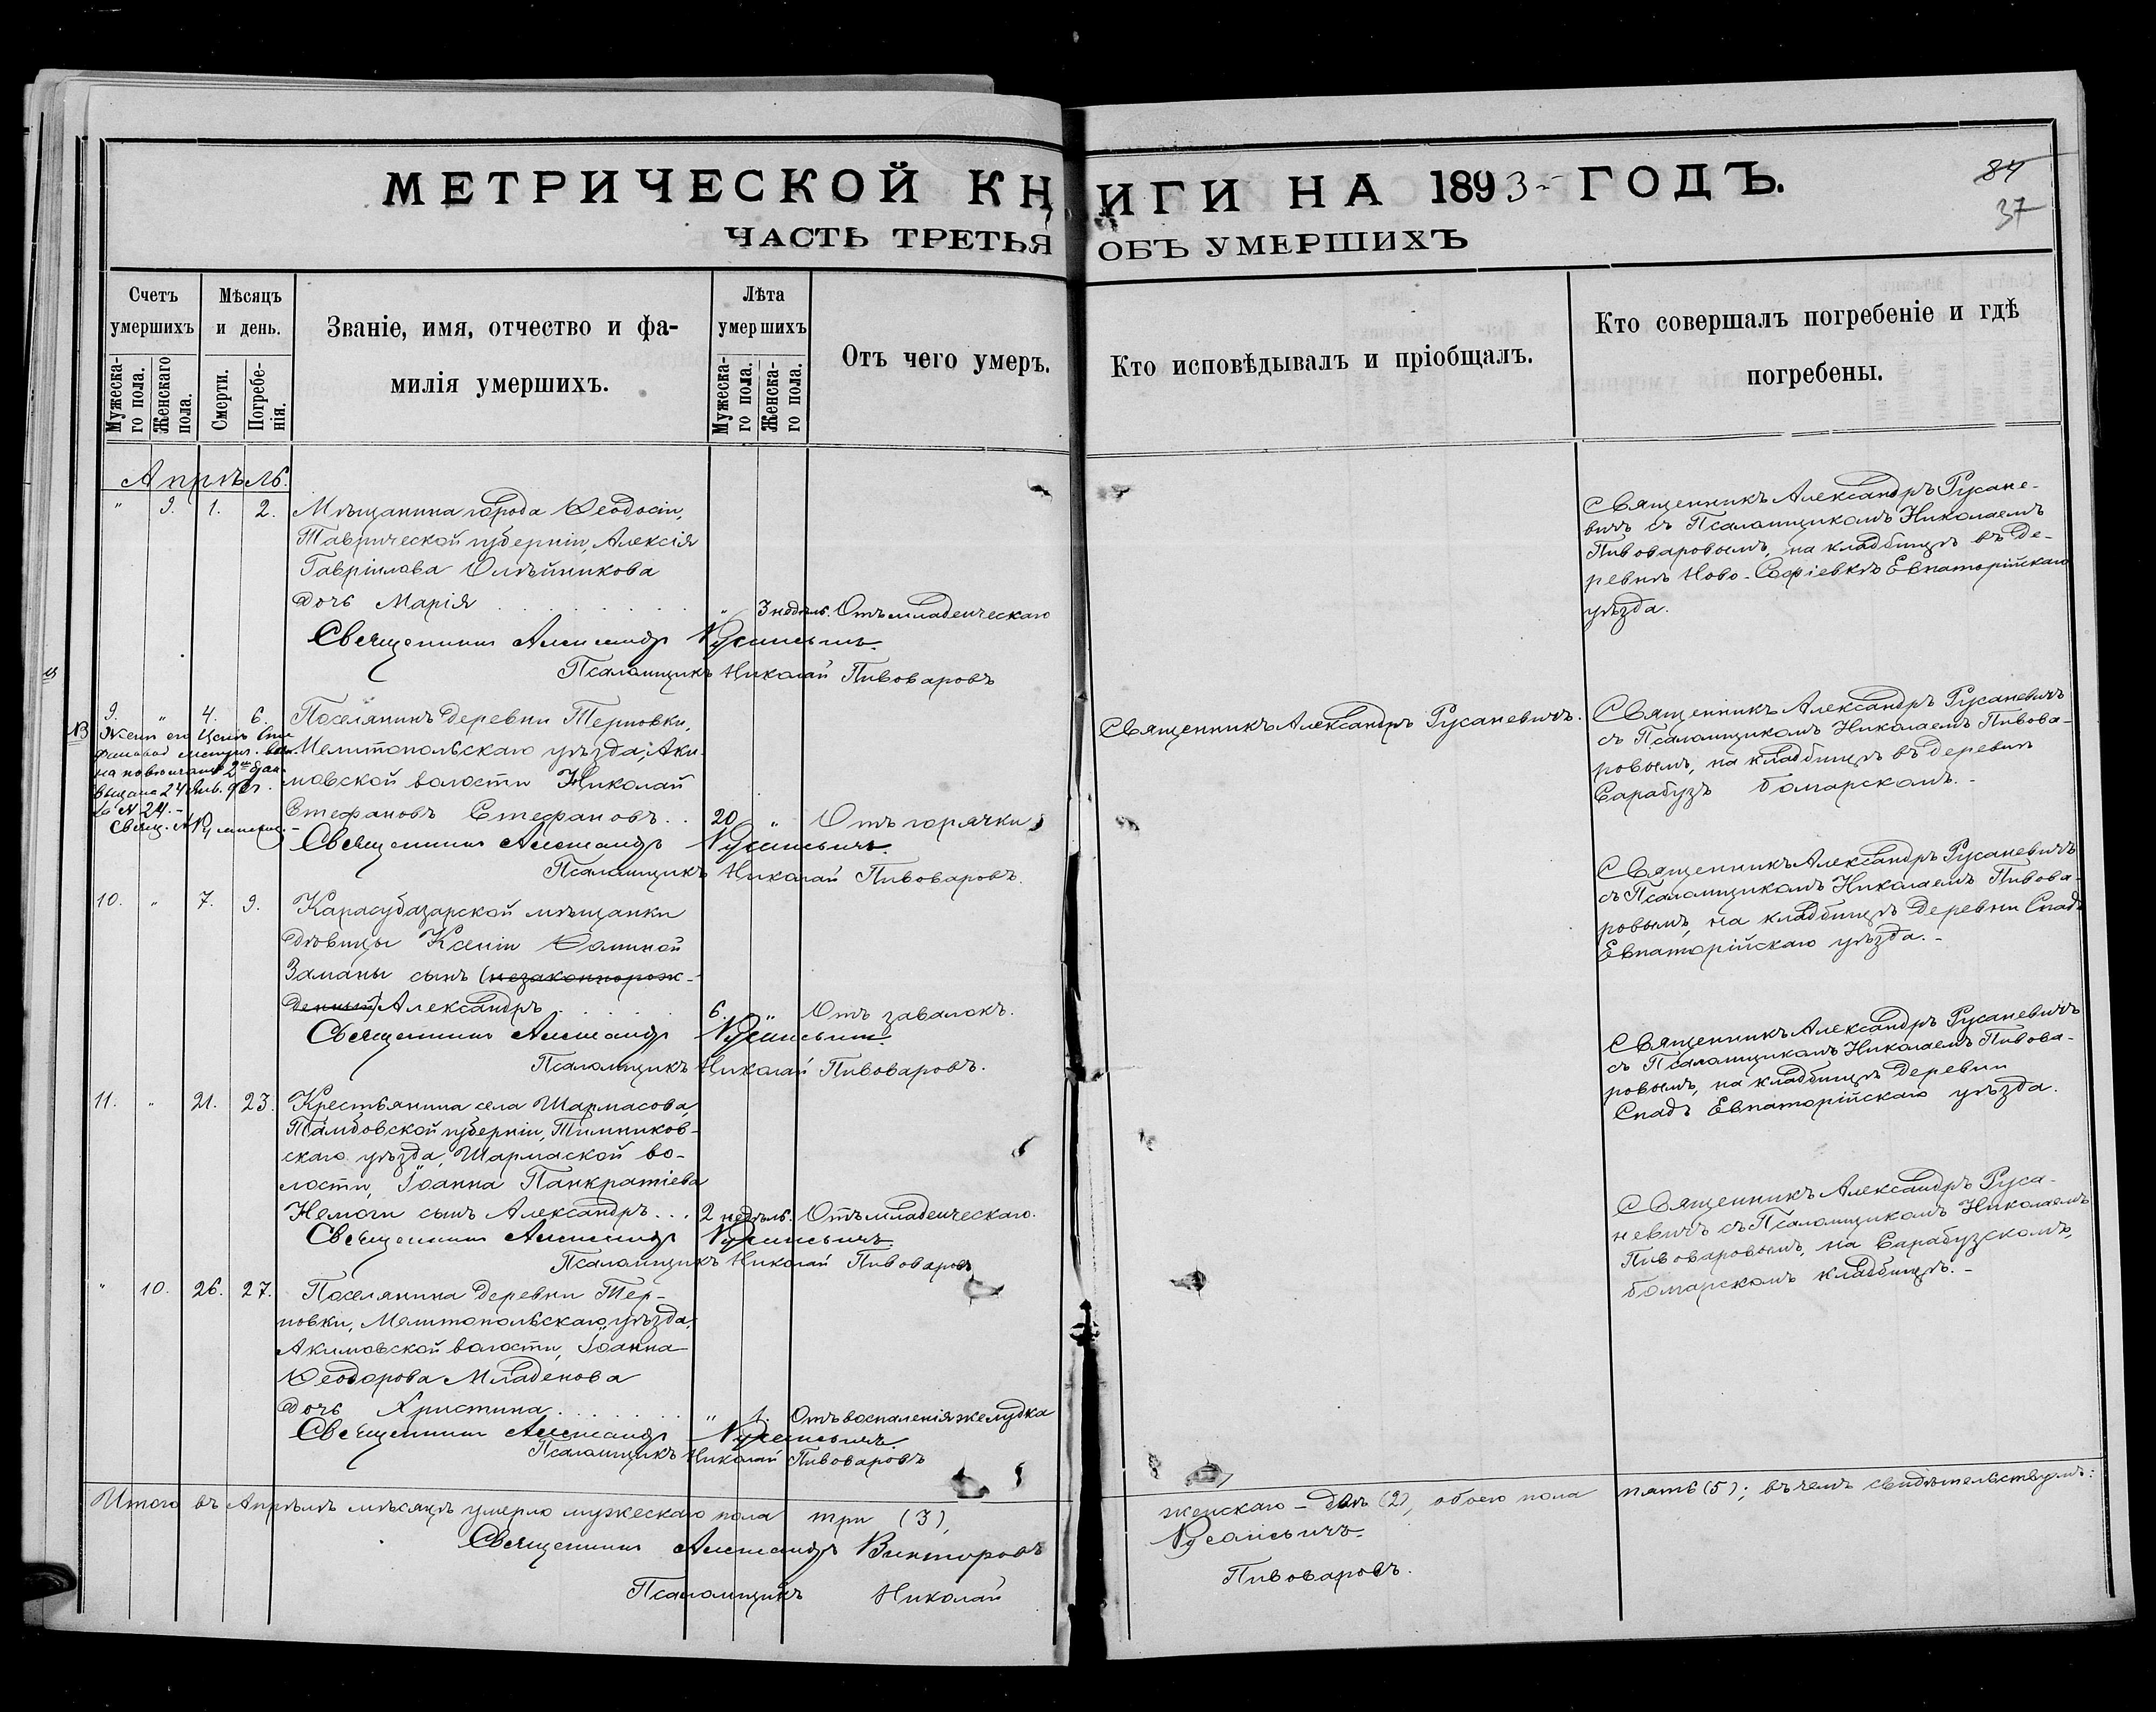 МЕТРИЧЕСКОЙ КНИГИ НА 1893 ГОДЪ.
84
37
ЧАСТЬ ТРЕТЬЯ ОБЪ УМЕРШИХЪ
Счетъ умершихъ
Мужеска-го пола.
Женскаго пола.
Мѣсяцъ и день.
Смерти.
Погребе-нія.
Званіе, имя, отчество и фа-
милія умершихъ.
Лѣта умершихъ
Мужеска-го пола.
Женска-го пола.
Отъ чего умеръ.
Кто исповѣдывалъ и пріобщалъ.
Кто совершалъ погребеніе и гдѣ
погребены.
Апрѣль.
" 9. 1. 2. Мѣщанина города Ѳеодосіи,
Таврической губерніи, Алексія
Гавріилова Олѣйникова
дочь Марія " 3 недѣль. Отъ младенческаго
Священникъ Александръ Русаневичъ
Псаломщикъ Николай Пивоваровъ
Священникъ Александръ Русане-
вичъ съ Псаломщикомъ Николаемъ
Пивоваровымъ, на кладбищѣ въ де-
ревнѣ Ново-Софіевкѣ Евпаторійскаго
уѣзда.
9. " 4. 6. Поселянинъ деревни Терновки,
Мелитопольскаго уѣзда, Аки-
мовской волости Николай
Стефановъ Стефановъ. . 20 " Отъ горячки
Священникъ Александръ Русаневичъ.
Псаломщикъ Николай Пивоваровъ.
NB Жени его
на 2й
выдана 24
за № 24.-
Свящ. А. Русаневич.
Священникъ Александръ Русаневичъ.
Священникъ Александръ Русаневичъ
съ Псаломщикомъ Николаемъ Пивова-
ровымъ, на кладбищѣ въ деревнѣ
Сарабузъ болгарскомъ.-
10. " 7. 9. Карасубазарской мѣщанки
дѣвицы Ксеніи Ѳоминой
Заманы сынъ (незаконнорож-
денный) Александръ 6. " Отъ завалокъ.
Священникъ Александръ Русаневичъ.
Псаломщикъ Николай Пивоваровъ.
Священникъ Александръ Русаневичъ
съ Псаломщикомъ Николаемъ Пивова-
ровымъ, на кладбищѣ деревни Спадъ
Евпаторійскаго уѣзда.-
11. " 21. 23. Крестьянина села Шармасова,
Тамбовской губерніи, Тимников-
скаго уѣзда, Шармаской во-
лости, Іоанна Панкратіева
Немоги сынъ Александръ. . . 2 недѣль. Отъ младенческаго.
Священникъ Александръ Русаневичъ.
Псаломщикъ Николай Пивоваровъ
Священникъ Александръ Русаневичъ
съ Псаломщикомъ Николаемъ Пивова-
ровымъ, на кладбищѣ деревни
Спадъ Евпаторійскаго уѣзда.
" 10. 26. 27. Поселянина деревни Тер-
новки, Мелитопольскаго уѣзда,
Акимовской волости, Іоанна
Ѳеодорова Младенова
дочь Христина " 1. Отъ воспаленія желудка
Священникъ Александръ Русаневичъ.
Псаломщикъ Николай Пивоваровъ
Священникъ Александръ Руса-
невичъ съ Псаломщикомъ Николаемъ
Пивоваровымъ, на Сарабузскомъ,
болгарскомъ кладбищѣ.-
Итого въ Апрѣлѣ мѣсяцѣ умерло мужескаго пола три (3), женскаго – двѣ (2), обоего пола пять (5); въ чемъ свидѣтельствуемъ:
Священникъ Александръ Викторовъ Русаневичъ.
Псаломщикъ Николай Пивоваровъ.